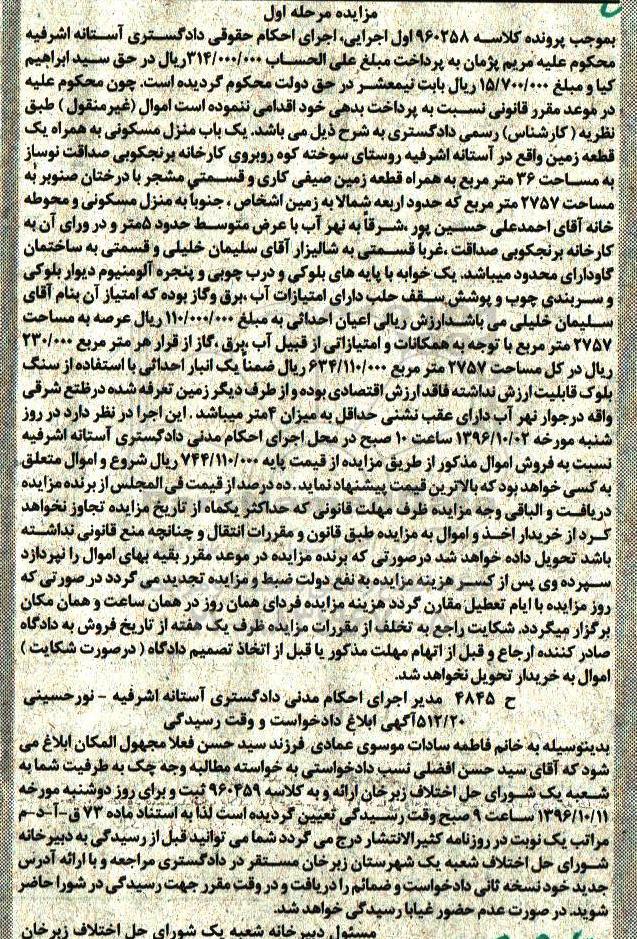 مزایده مرحله اول
بموجب پرونده کلاسه ۹۶۰۲۵۸ اول اجرایی، اجرای احکام حقوقی دادگستری آستانه اشرفیه
محکوم علیه مریم پژمان به پرداخت مبلغ علی الحساب ۳۱۴/۰۰۰/۰۰۰ریال در حق سید ابراهیم
کیا و مبلغ ۱۵/۷۰۰/۰۰۰ ریال بابت نیمعشر در حق دولت محکوم گردیده است. چون محکوم علیه
در موعد مقرر قانونی نسبت به پرداخت بدهی خود اقدامی ننموده است اموال (غیرمنقول ) طبق
نظریه ( کارشناس) رسمی دادگستری به شرح ذیل می باشد. یک باب منزل مسکونی به همراه یک
قطعه زمین واقع در آستانه اشرفیه روستای سوخته کوه روبروی کارخانه برنجکوبی صداقت نوساز
به مساحت ۳۶ متر مربع به همراه قطعه زمین صیفی کاری و قسمتی مشجر با درختان صنوبر به
مساحت ۲۷۵۷ متر مربع که حدود اربعه شمالا به زمین اشخاص ، جنوباً به منزل مسکونی و محوطه
خانه آقای احمدعلی حسین پور ،شرقاً به نهر آب با عرض متوسط حدود ۵متر و در ورای آن به
کارخانه برنجکوبی صداقت ،غرباً قسمتی به شالیزار آقای سلیمان خلیلی و قسمتی به ساختمان
گاودارای محدود میباشد. یک خوابه با پایه های بلوکی و درب چوبی و پنجره آلومنیوم دیوار بلوکی
و سربندی چوب و پوشش سقف حلب دارای امتیازات آب ،برق وگاز بوده که امتیاز آن بنام آقای
سلیمان خلیلی می باشدارزش ریالی اعیان احداثی به مبلغ ۱۱۰/۰۰۰/۰۰۰ ریال عرصه به مساحت
۲۷۵۷ متر مربع با توجه به همکانات و امتیازاتی از قبیل آب ،برق ،گاز از قرار هر متر مربع ۲۳۰/۰۰۰
ریال در کل مساحت ۲۷۵۷ متر مربع ۶۳۴/۱۱۰/۰۰۰ ریال ضمناً یک انبار احداثی با استفاده از سنگ
بلوک قابلیت ارزش نداشته فاقد ارزش اقتصادی بوده و از طرف دیگر زمین تعرفه شده در ظتع شرقی
واقه درجوار نهر آب دارای عقب نشنی حداقل به میزان ۴متر میباشد . این اجرا در نظر دارد در روز
شنبه مورخه ۱۳۹۶/۱۰/۰۲ ساعت ۱۰ صبح در محل اجرای احکام مدنی دادگستری آستانه اشرفیه
نسبت به فروش اموال مذکور از طریق مزایده از قیمت پایه ۷۴۴/۱۱۰/۰۰۰ ریال شروع و اموال متعلق
به کسی خواهد بود که بالاترین قیمت پیشنهاد نماید. ده درصد از قیمت فی المجلس از برنده مزایده
دریافت و الباقی وجه مزایده ظرف مهلت قانونی که حداکثر یکماه از تاریخ مزایده تجاوز نخواهد
کرد از خریدار اخذ و اموال به مزایده طبق قانون و مقررات انتقال و چنانچه منع قانونی نداشته
باشد تحویل داده خواهد شد درصورتی که برنده مزایده در موعد مقرر بقیه بهای اموال را نپردازد
سپرده وی پس از کسر هزینه مزایده به نفع دولت ضبط و مزایده تجدید می گردد در صورتی که
روز مزایده با ایام تعطیل مقارن گردد هزینه مزایده فردای همان روز در همان ساعت و همان مکان
برگزار میگردد. شکایت راجع به تخلف از مقررات مزایده ظرف یک هفته از تاریخ فروش به دادگاه
صادر کننده ارجاع و قبل از اتهام مهلت مذکور یا قبل از اتخاذ تصمیم دادگاه ( درصورت شکایت )
اموال به خریدار تحویل نخواهد شد.
ح ۴۸۴۵ مدیر اجرای احکام مدنی دادگستری آستانه اشرفیه - نورحسینی
۵۱۲/۲۰آگهی ابلاغ دادخواست و وقت رسیدگی
بدینوسیله به خانم فاطمه سادات موسوی عمادی فرزند سید حسن فعلا مجهول المکان ابلاغ می
شود که آقای سید حسن افضلی نسب دادخواستی به خواسته مطالبه وجه چک به طرفیت شما به
شعبه یک شورای حل اختلاف زبرخان ارائه و به کلاسه ۹۶۰۴۵۹ ثبت و برای روز دوشنبه مورخه
۱۳۹۶/۱۰/۱۱ ساعت ۹ صبح وقت رسیدگی تعیین گردیده است لذا به استناد ماده ۷۳ ق-آ-د-م
مراتب یک نوبت در روزنامه کثیرالانتشار درج می گردد شما می توانید قبل از رسیدگی به دبیرخانه
شورای حل اختلاف شعبه یک شهرستان زبرخان مستقر در دادگستری مراجعه و با ارائه آدرس
جدید خود نسخه ثانی دادخواست و ضمائم را دریافت و در وقت مقرر جهت رسیدگی در شورا حاضر
شوید. در صورت عدم حضور غیابا رسیدگی خواهد شد.
مسئول دبیرخانه شعبه یک شورای حل اختلاف زبرخان